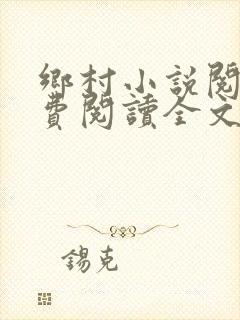 鄉村小説閱
費閱讀全文
錫克